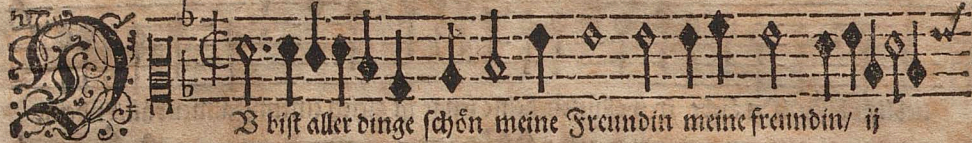 DV bist aller dinge schön meine Freundin meine freundin/ ij